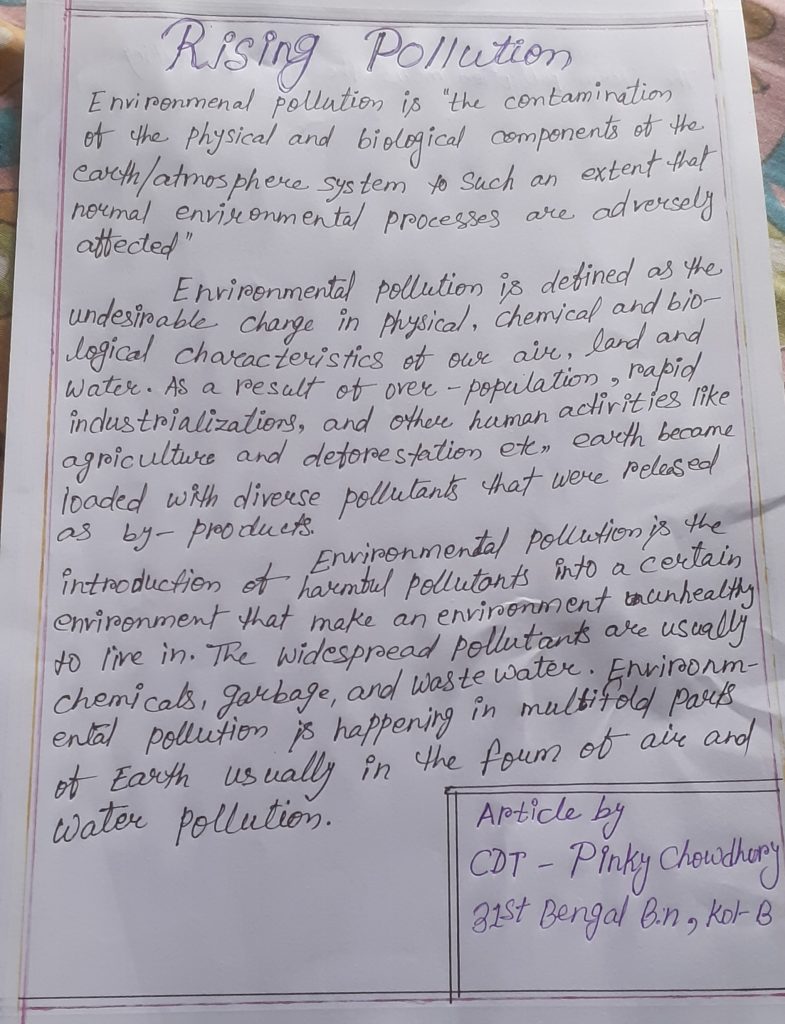 Rising Pollution
Environmenal pollution is "the contamination
of the physical and biological components of the
earth/atmosphere system to such an extent that
normal environmental processes are adversely
affected"
Environmental pollution is defined as the
undesirable change in physical, chemical and bio-
logical characteristics of our air, land and
water. As a result of over-population, rapid
industrializations, and other human activities like
agriculture and deforestation etc,, earth became
loaded with diverse pollutants that were released
as by-products.
Environmental pollution is the
introduction of harmful pollutants into a certain
environment that make an environment unhealthy
to live in. The widespread pollutants are usually
chemicals, garbage, and waste water. Environm-
ental pollution is happening in multifold parts
of Earth usually in the foum of air and
water pollution.
Article by
CDT - Pinky Chowdhory
31st Bengal B.n, Kol-B